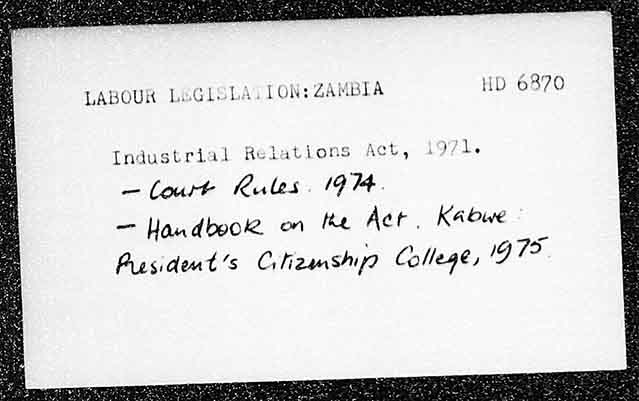 LABOUR LEGISLATION: ZAMBIA HD 6870
Industrial Relations Act, 1971.
– Court Rules. 1974.
– Handbook on the Act. Kabwe:
President's Citizenship College, 1975.